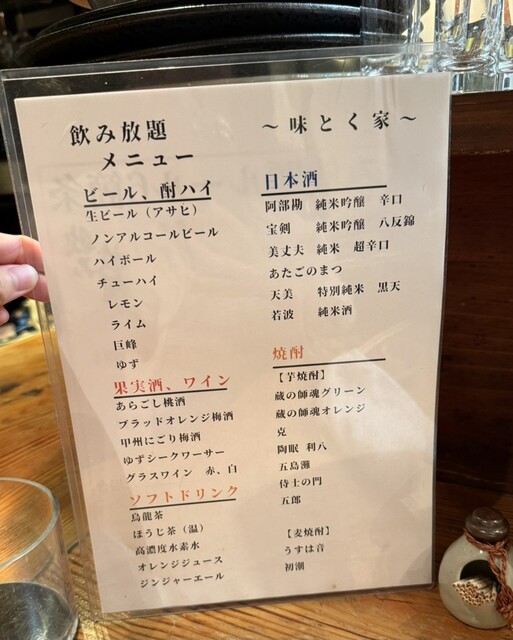 飲み放題
メニュー
ビール、酎ハイ
生ビール（アサヒ）
ノンアルコールビール
ハイボール
チューハイ
レモン
ライム
巨峰
ゆず
果実酒、ワイン
あらごし桃酒
ブラッドオレンジ梅酒
甲州にごり梅酒
ゆずシークワーサー
グラスワイン 赤、白
ソフトドリンク
烏龍茶
ほうじ茶（温）
高濃度水素水
オレンジジュース
ジンジャーエール
～味とく家～
日本酒
阿部勘 純米吟醸 辛口
宝剣 純米吟醸 八反錦
美丈夫 純米 超辛口
あたごのまつ
天美 特別純米 黒天
若波 純米酒
焼酎
【芋焼酎】
蔵の師魂グリーン
蔵の師魂オレンジ
克
陶眠 利八
五島灘
侍士の門
五郎
【麦焼酎】
うすは音
初潮